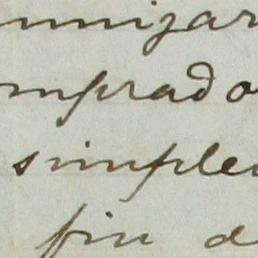 unizar
mprado
simple
fin d